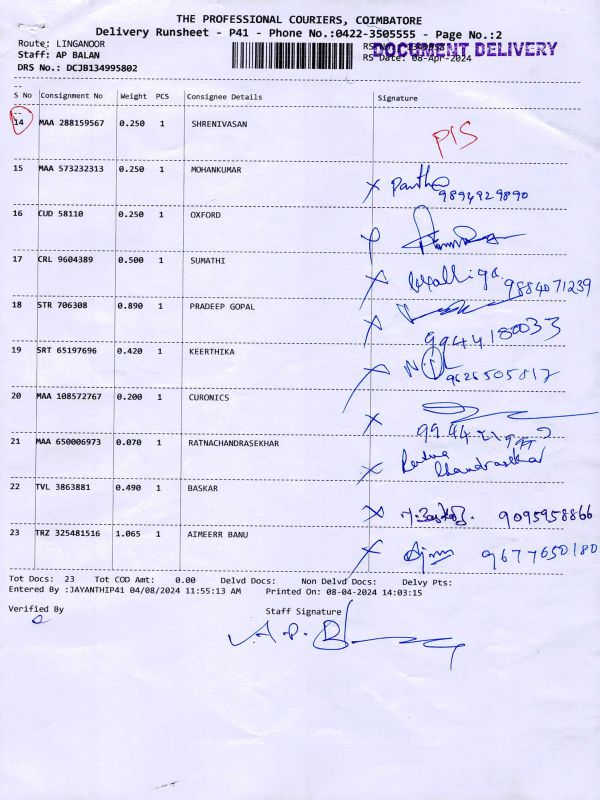 THE PROFESSIONAL COURIERS, COIMBATORE
Delivery Runsheet - P41 - Phone No.:0422-3505555 - Page No.:2
Route: LINGANOOR
DOCUMENT DELIVERY
Staff: AP BALAN
RS Date: 08-Apr-2024
DRS No.: DCJB134995802
S No Consignment No Weight PCS Consignee Details Signature
14 MAA 288159567 0.250 1 SHRENIVASAN PIS
15 MAA 573232313 0.250 1 MOHANKUMAR X 9894929890
16 CUD 58110 0.250 1 OXFORD
17 CRL 9604389 0.500 1 SUMATHI X 9884071239
18 STR 706308 0.890 1 PRADEEP GOPAL X 9944180033
19 SRT 65197696 0.420 1 KEERTHIKA X 9626505817
20 MAA 108572767 0.200 1 CURONICS X
21 MAA 650006973 0.070 1 RATNACHANDRASEKHAR X Ratna Chandrasekhar
22 TVL 3863881 0.490 1 BASKAR X 9095958866
23 TRZ 325481516 1.065 1 AIMEERR BANU X 9677650180
Tot Docs: 23 Tot COD Amt: 0.00 Delvd Docs: Non Delvd Docs: Delvy Pts:
Entered By :JAYANTHIP41 04/08/2024 11:55:13 AM Printed On: 08-04-2024 14:03:15
Verified By Staff Signature
A.P.